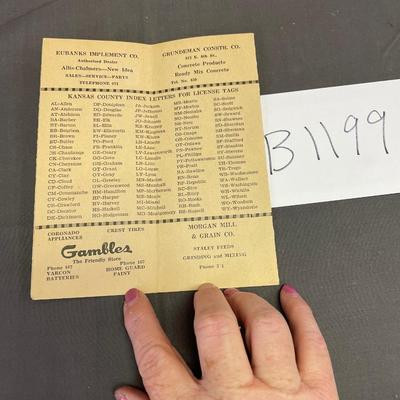 EUBANKS IMPLEMENT CO.
Authorized Dealer
Allis-Chalmers—New Idea
SALES—SERVICE—PARTS
TELEPHONE 671
GRUNDEMAN CONSTR. CO.
Concrete Products
Ready Mix Concrete
Tel. No. 450
KANSAS COUNTY INDEX LETTERS FOR LICENSE TAGS
AL-Allen
AN-Anderson
AT-Atchison
BA-Barber
BT-Barton
BB-Bourbon
BR-Brown
BU-Butler
CS-Chase
CQ-Chautauqua
CK-Cherokee
CN-Cheyenne
CA-Clark
CY-Clay
CD-Cloud
CF-Coffey
CM-Comanche
CL-Cowley
CR-Crawford
DC-Decatur
DK-Dickinson
DP-Doniphan
DG-Douglas
ED-Edwards
EK-Elk
EL-Ellis
EW-Ellsworth
FI-Finney
FO-Ford
FR-Franklin
GE-Geary
GO-Gove
GH-Graham
GT-Grant
GY-Gray
GL-Greeley
GW-Greenwood
HM-Hamilton
HP-Harper
HV-Harvey
HS-Haskell
HG-Hodgeman
JA-Jackson
JF-Jefferson
JW-Jewell
JO-Johnson
KE-Kearny
KM-Kingman
KW-Kiowa
LB-Labette
LE-Lane
LV-Leavenworth
LC-Lincoln
LN-Linn
LG-Logan
LY-Lyon
MN-Marion
MS-Marshall
MP-McPherson
ME-Meade
MI-Miami
MC-Mitchell
MG-Montgomery
MR-Morris
MT-Morton
NM-Nemaha
NO-Neosho
NS-Ness
NT-Norton
OS-Osage
OB-Osborne
OT-Ottawa
PN-Pawnee
PL-Phillips
PT-Pottawatomie
PR-Pratt
RA-Rawlins
RN-Reno
RP-Republic
RC-Rice
RL-Riley
RO-Rooks
RH-Rush
RS-Russell
SA-Saline
SC-Scott
SG-Sedgwick
SW-Seward
SN-Shawnee
SD-Sheridan
SH-Sherman
SM-Smith
SF-Stafford
ST-Stanton
SV-Stevens
SU-Sumner
TH-Thomas
TR-Trego
WB-Wabaunsee
WA-Wallace
WS-Washington
WH-Wichita
WL-Wilson
WO-Woodson
WY-Wyandotte
CORONADO
APPLIANCES
CREST TIRES
Gambles
The Friendly Store
Phone 167
VARCON
BATTERIES
Phone 167
HOME GUARD
PAINT
MORGAN MILL
& GRAIN CO.
STALEY FEEDS
GRINDING and MIXING
B1199